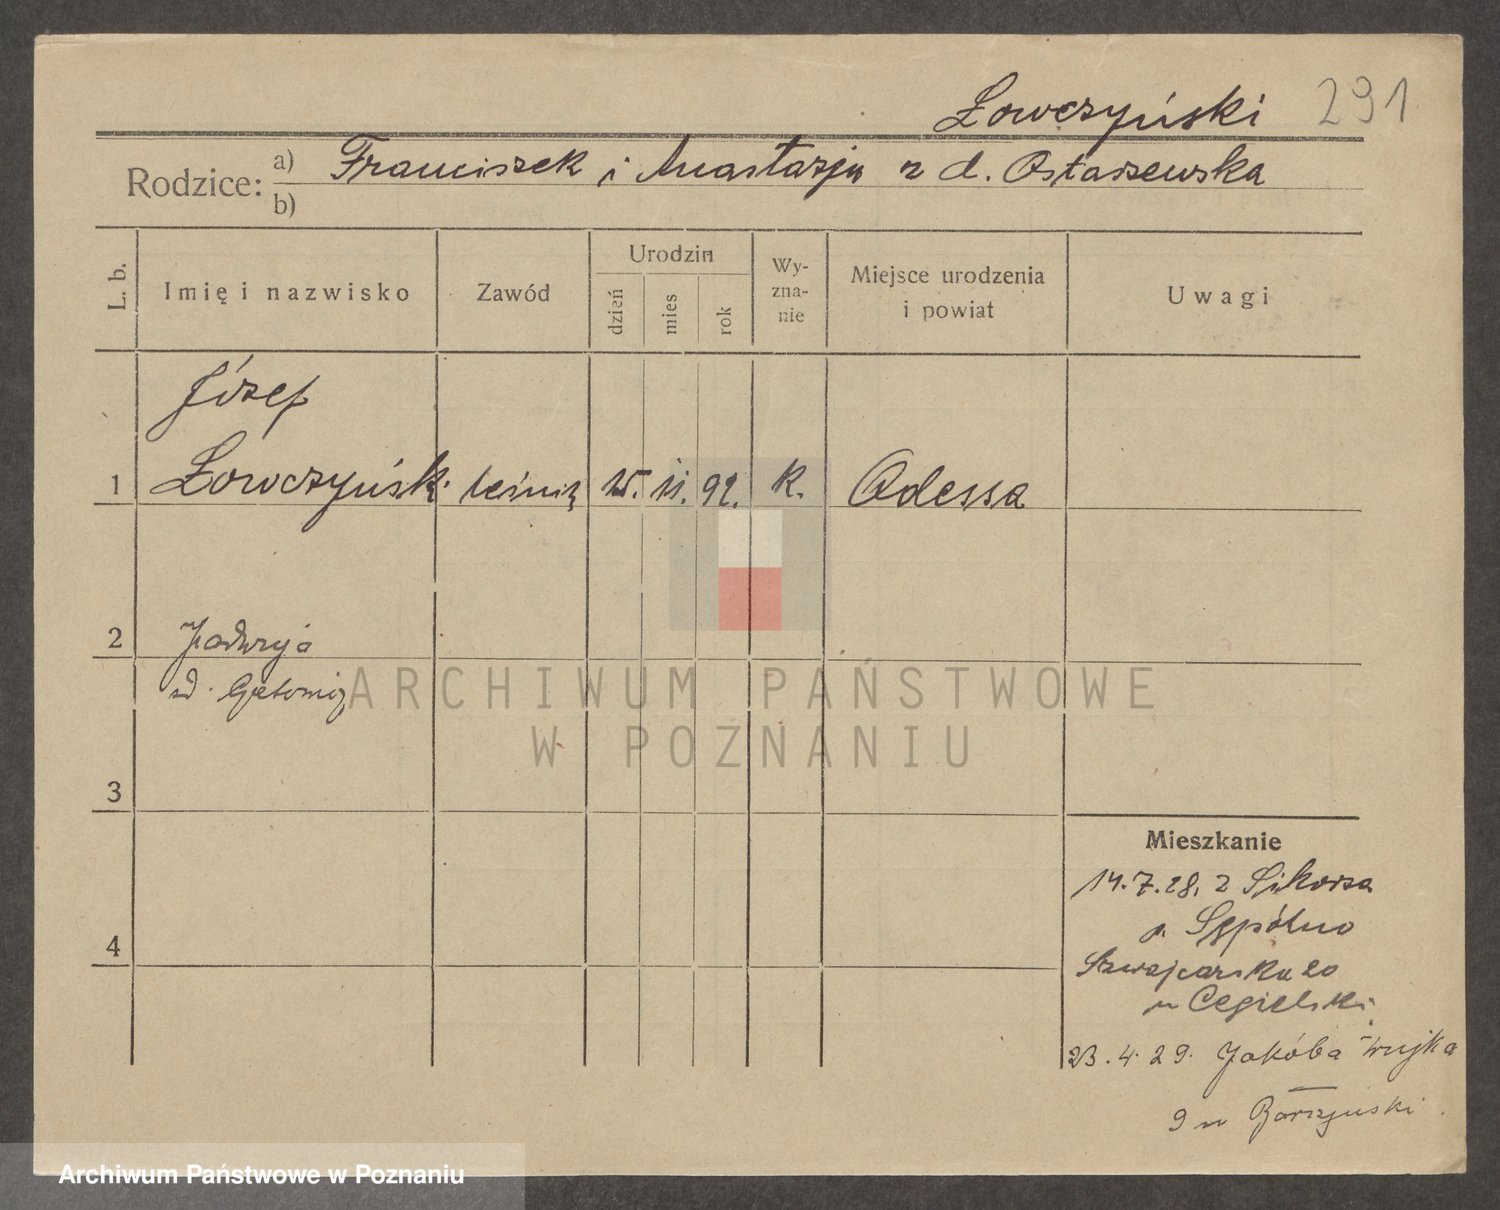 Łowczyński 291
Rodzice: a) Franciszek i Anastazja z d. Ostaszewska
b)
L. b.
Imię i nazwisko
Zawód
Urodzin
dzień
mies
rok
Wy-
zna-
nie
Miejsce urodzenia
i powiat
Uwagi
Józef
1 Łowczyńsk. leśnik 15. 11. 92. k. Odessa
2 Jadwiga
3
4
Mieszkanie
14.7.28. z Sikorza
p. Sępólno
Szwajcarska 20
u Cegielski
23.4.29. Jakóba Wujka
9 u Borzyński
ARCHIWUM PAŃSTWOWE
W POZNANIU
Archiwum Państwowe w Poznaniu